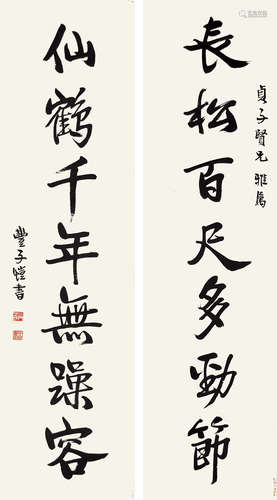 長松百尺多勁節
貞子賢兄雅屬
仙鶴千年無躁容
豐子愷書